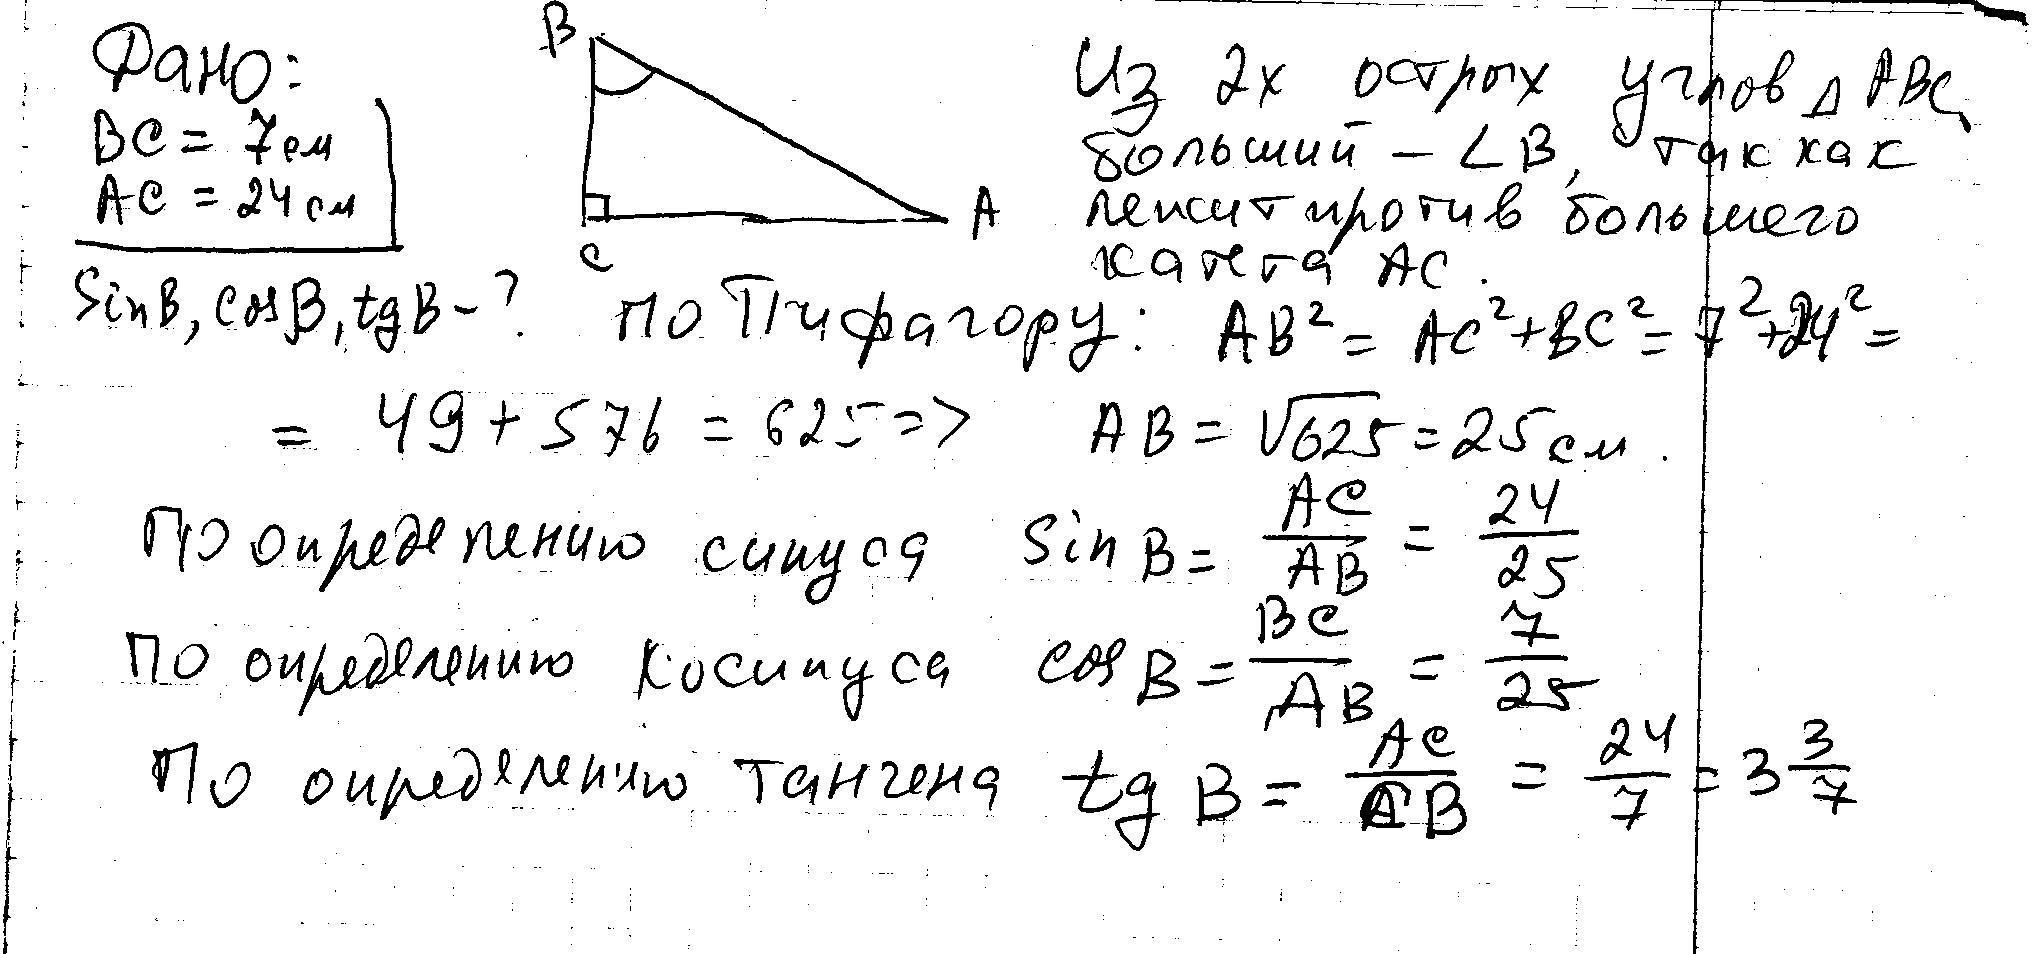 Дано:
BC = 7см
AC = 24см
B
C
A
Из 2х острых углов △ ABC,
больший – ∠B, так как
лежит против большего
катета AC.
SinB, cosB, tgB – ?
По Пифагору: AB² = AC² + BC² = 7² + 24² =
= 49 + 576 = 625 => AB = √625 = 25 см.
По определению синуса sin B = AC/AB = 24/25
По определению косинуса cos B = BC/AB = 7/25
По определению тангена tg B = AC/CB = 24/7 = 3 3/7